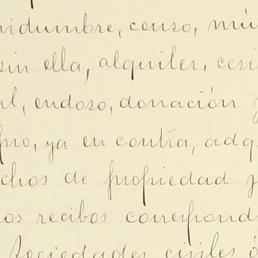 vidumbre, censo, mú
sin ella, alquiler, cesi
al, endoso, donación y
pro, ya en contra, adq
chos de propiedad y
os recibos correspond
Sociedades civiles ó